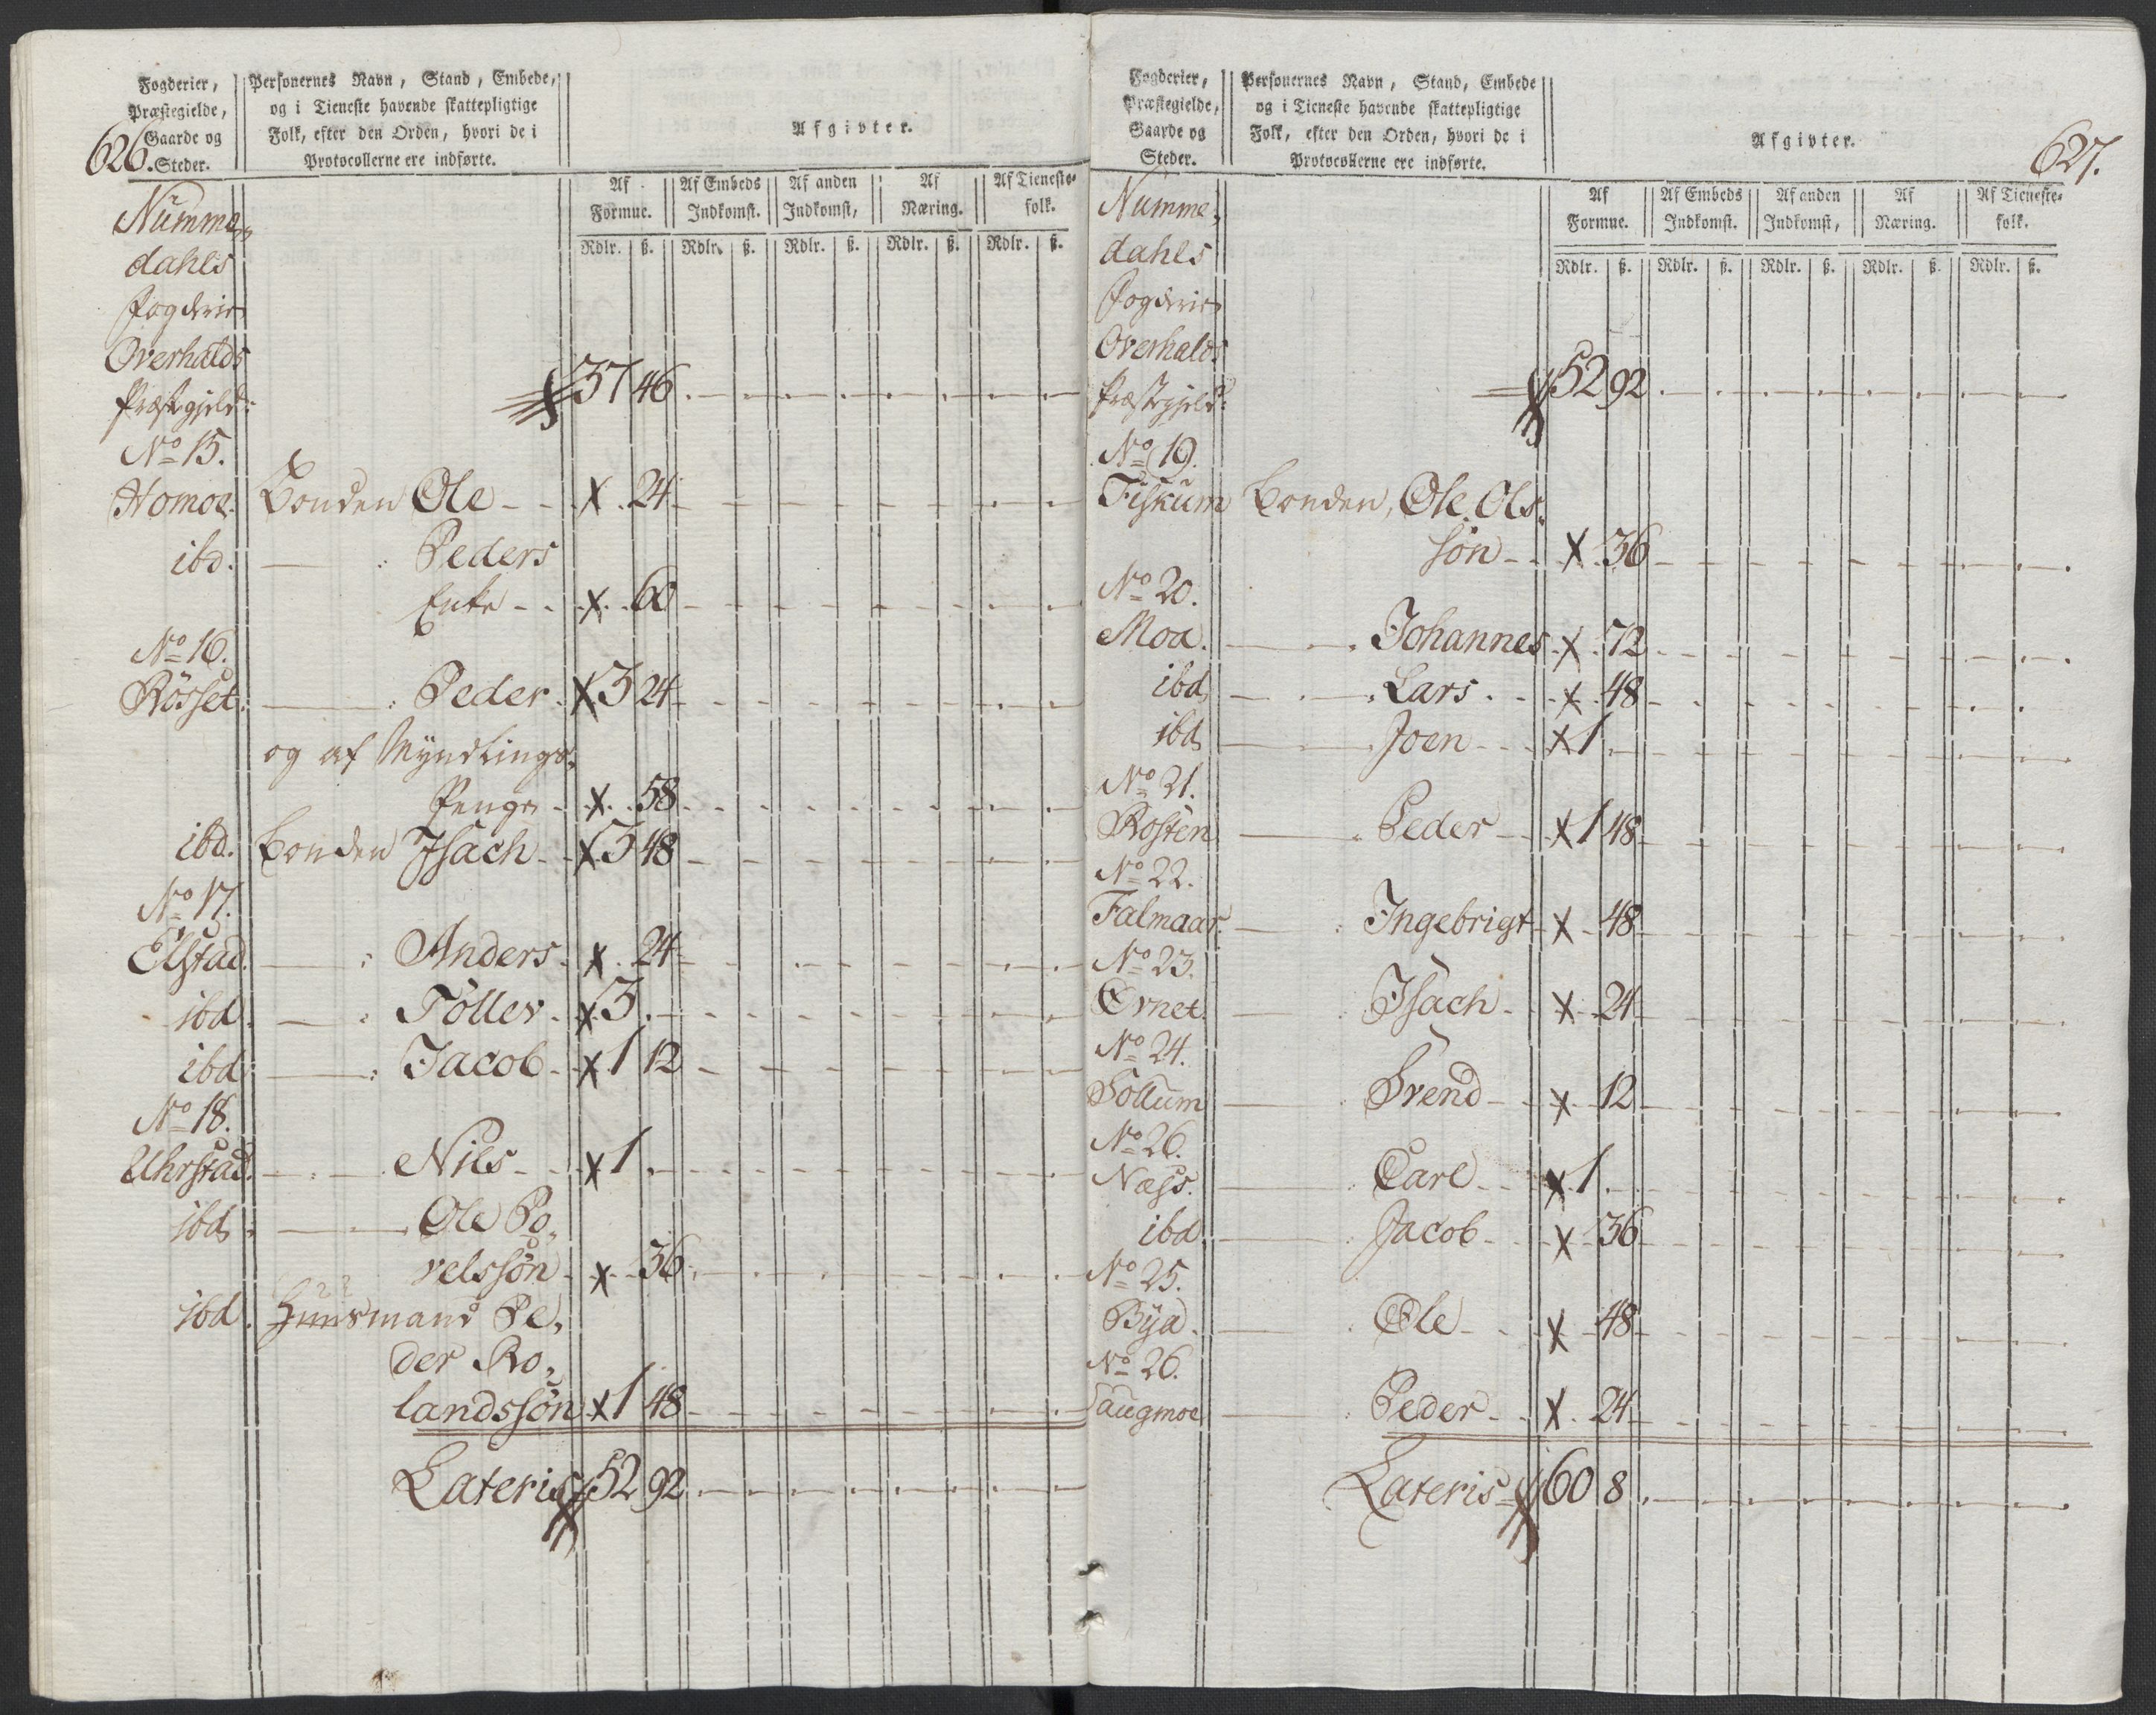 626.
Fogderier, Præstegielde, Gaarde og Steder.
Personernes Navn, Stand, Embede, og i Tieneste havende skattepligtige Folk, efter den Orden, hvori de i Protocollerne ere indførte.
Afgivter.
Af Formue. Af Embeds Indkomst. Af anden Indkomst, Af Næring. Af Tieneste-folk.
Rdlr. ß. Rdlr. ß. Rdlr. ß. Rdlr. ß. Rdlr. ß.
Numme-
dahls
Fogderie
Overhalds
Præstegjeld: 37 46
No 15.
Homoe. Bonden Ole - - X . 24
ibd. : Peders
Enke - - X . 60
No 16.
Rösset. : Peder - X 3 24
og af Myndlings-
Penge - X . 58
ibd. Bonden Isach - X 5 48
No 17.
Elstad. : Anders - X . 24
ibd. : Töller - X 3 .
ibd : Jacob - X 1 12
No 18.
Uhrstad. Nils - - X 1 .
ibd. Ole Po-
velssön - X - 36
ibd. Huusmand Pe-
der Ro-
landssön X 1 48
Lateris 52 92
627.
Fogderier, Præstegielde, Gaarde og Steder.
Personernes Navn, Stand, Embede og i Tieneste havende skattepligtige Folk, efter den Orden, hvori de i Protocollerne ere indførte.
Afgivter.
Af Formue. Af Embeds Indkomst. Af anden Indkomst, Af Næring. Af Tieneste-folk.
Rdlr. ß. Rdlr. ß. Rdlr. ß. Rdlr. ß. Rdlr. ß.
Numme-
dahls
Fogderie
Overhalds
Præstegjeld: 52 92
No 19.
Fiskum Bonden, Ole Ols-
sön - - X . 36
No 20.
Moa. Johannes X . 72
ibd Lars - - X . 48
ibd Joen - - X 1 .
No 21.
Rosten Peder - - X 1 48
No 22.
Falmaar. : Ingebrigt - X - 48
No 23.
Ørnet. Isach - - X - 24
No 24.
Sollum Svend - - X - 12
No 26.
Næss. Carl - - X 1 .
ibd. Jacob - - X - 36
No 25.
Bya. Ole - - X - 48
No 26.
Saugmoe Peder - - X . 24
Lateris 60 8